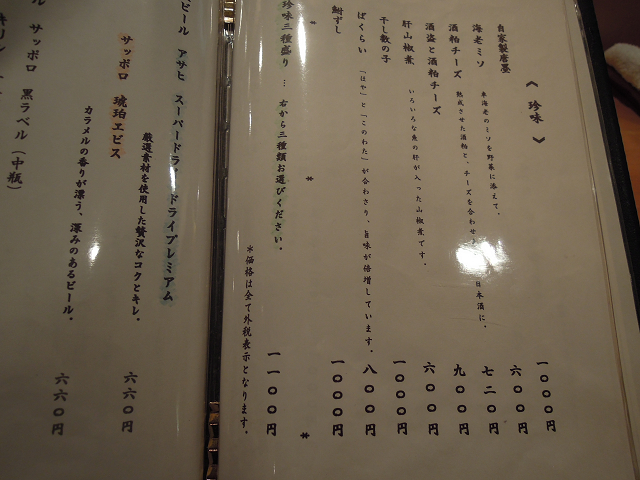 《珍味》
自家製唐墨 一〇〇〇円
海老ミソ 車海老のミソを野菜に添えて。 六〇〇円
酒粕チーズ 熟成させた酒粕と、チーズを合わせ 日本酒に。 七二〇円
酒盗と酒粕チーズ 九〇〇円
肝山椒煮 いろいろな魚の肝が入った山椒煮です。 六〇〇円
干し数の子 一〇〇〇円
ばくらい 「ほや」と「このわた」が合わさり、旨味が倍増しています。 八〇〇円
鮒ずし 一〇〇〇円
* * *
珍味三種盛り … 右から三種類お選びください。 一一〇〇円
*価格は全て外税表示となります。
ビール アサヒ スーパードラ ドライプレミアム
厳選素材を使用した贅沢なコクとキレ。 六六〇円
サッポロ 琥珀ヱビス
カラメルの香りが漂う、深みのあるビール。 六六〇円
ル サッポロ 黒ラベル(中瓶)
キリン